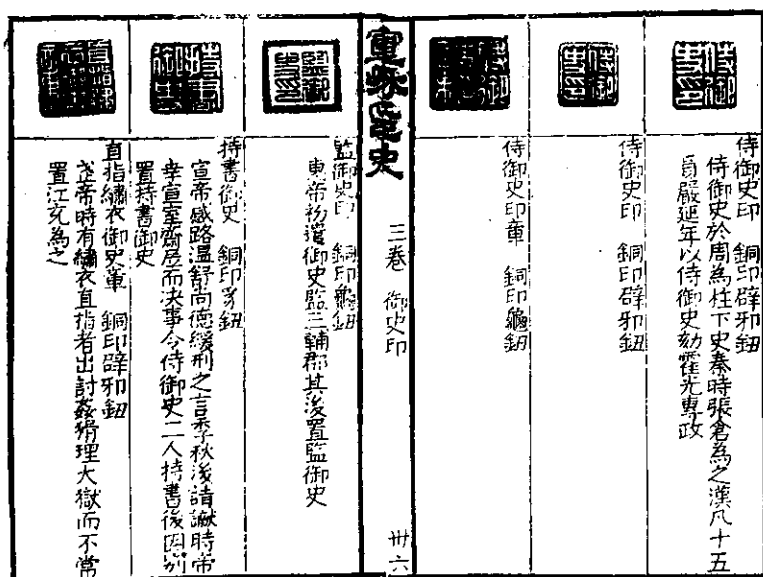 侍御史印
侍御史印 銅印辟邪鈕
侍御史於周為柱下史秦時張倉為之漢凡十五
員嚴延年以侍御史劾霍光專政
侍御史印
侍御史印 銅印辟邪鈕
侍御史印章 銅印龜鈕
宣和印史
三卷 御史印
卅六
監御史印
監御史印 銅印龜鈕
惠帝初遣御史監三輔郡其後置監御史
持書御史
持書御史 銅印豸鈕
宣帝感路溫舒尚德緩刑之言季秋後請讞時帝
幸宣室齋居而決事令侍御史二人持書後因別
置持書御史
直指繡衣御史章 銅印辟邪鈕
武帝時有繡衣直指者出討姦猾理大獄而不常
置江充為之